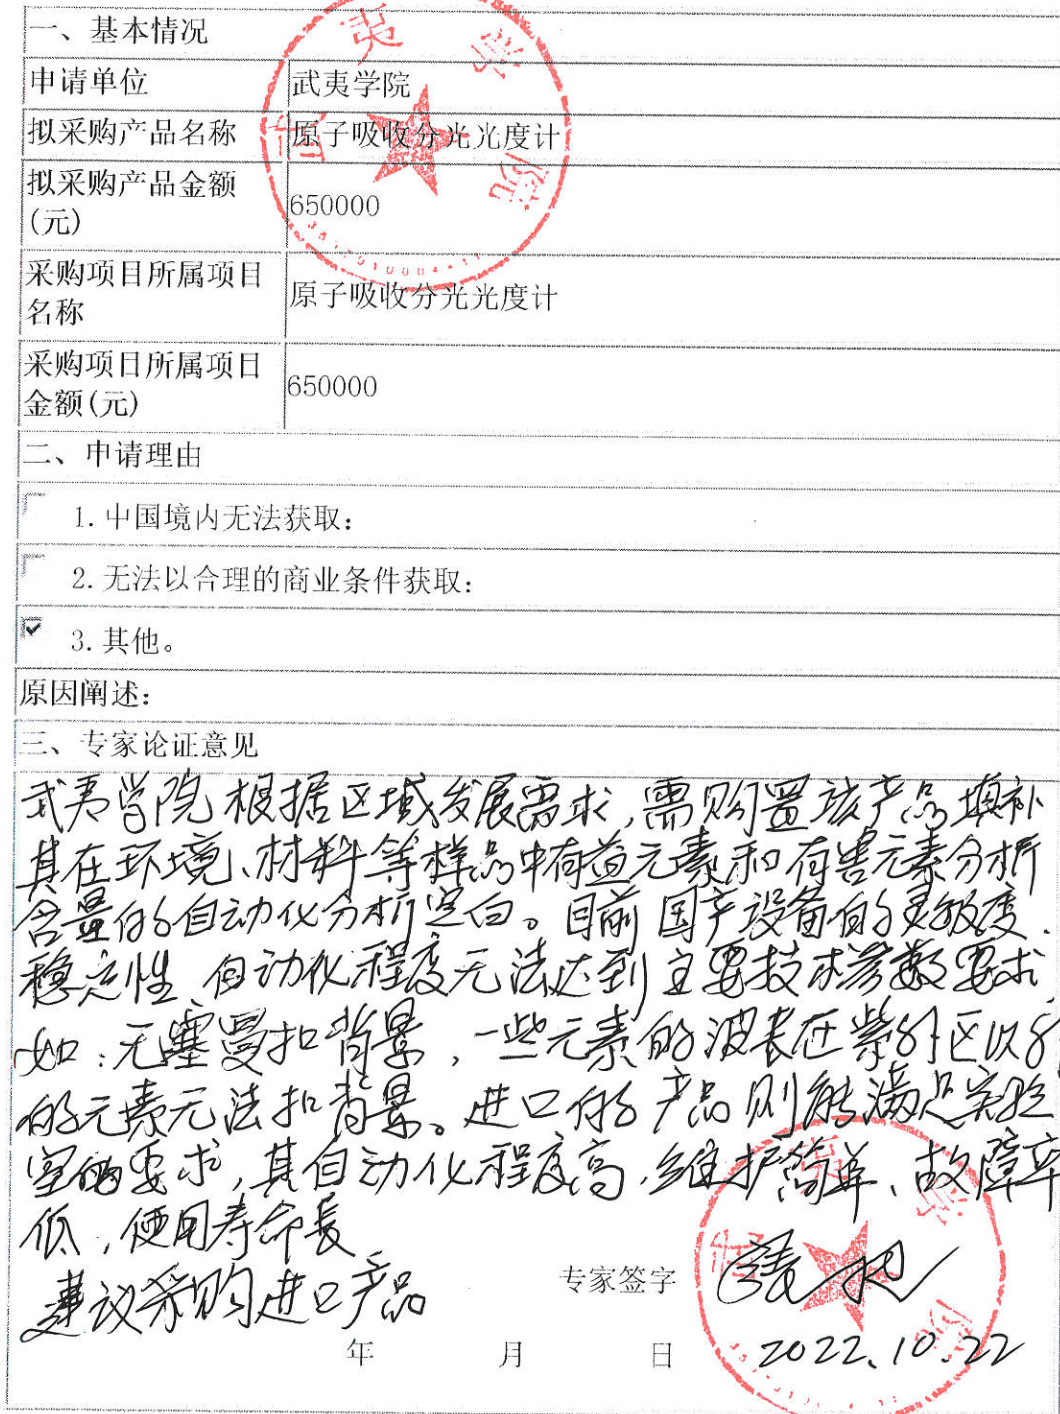 一、基本情况
申请单位 武夷学院
拟采购产品名称 原子吸收分光光度计
拟采购产品金额
(元) 650000
采购项目所属项目
名称 原子吸收分光光度计
采购项目所属项目
金额(元) 650000
二、申请理由
1.中国境内无法获取:
2.无法以合理的商业条件获取:
3.其他。
原因阐述:
三、专家论证意见
武夷学院根据区域发展需求,需购置该产品填补
其在环境、材料等样品中有益元素和有害元素分析
含量的自动化分析空白。目前国产设备的灵敏度、
稳定性、自动化程度无法达到主要技术参数要求
如:无塞曼扣背景,一些元素的波长在紫外区以外
的元素无法扣背景。进口的产品则能满足实验
室的要求,其自动化程度高、维护简单、故障率
低,使用寿命长
建议采购进口产品
专家签字
年 月 日 2022.10.22
武夷学院
武夷学院